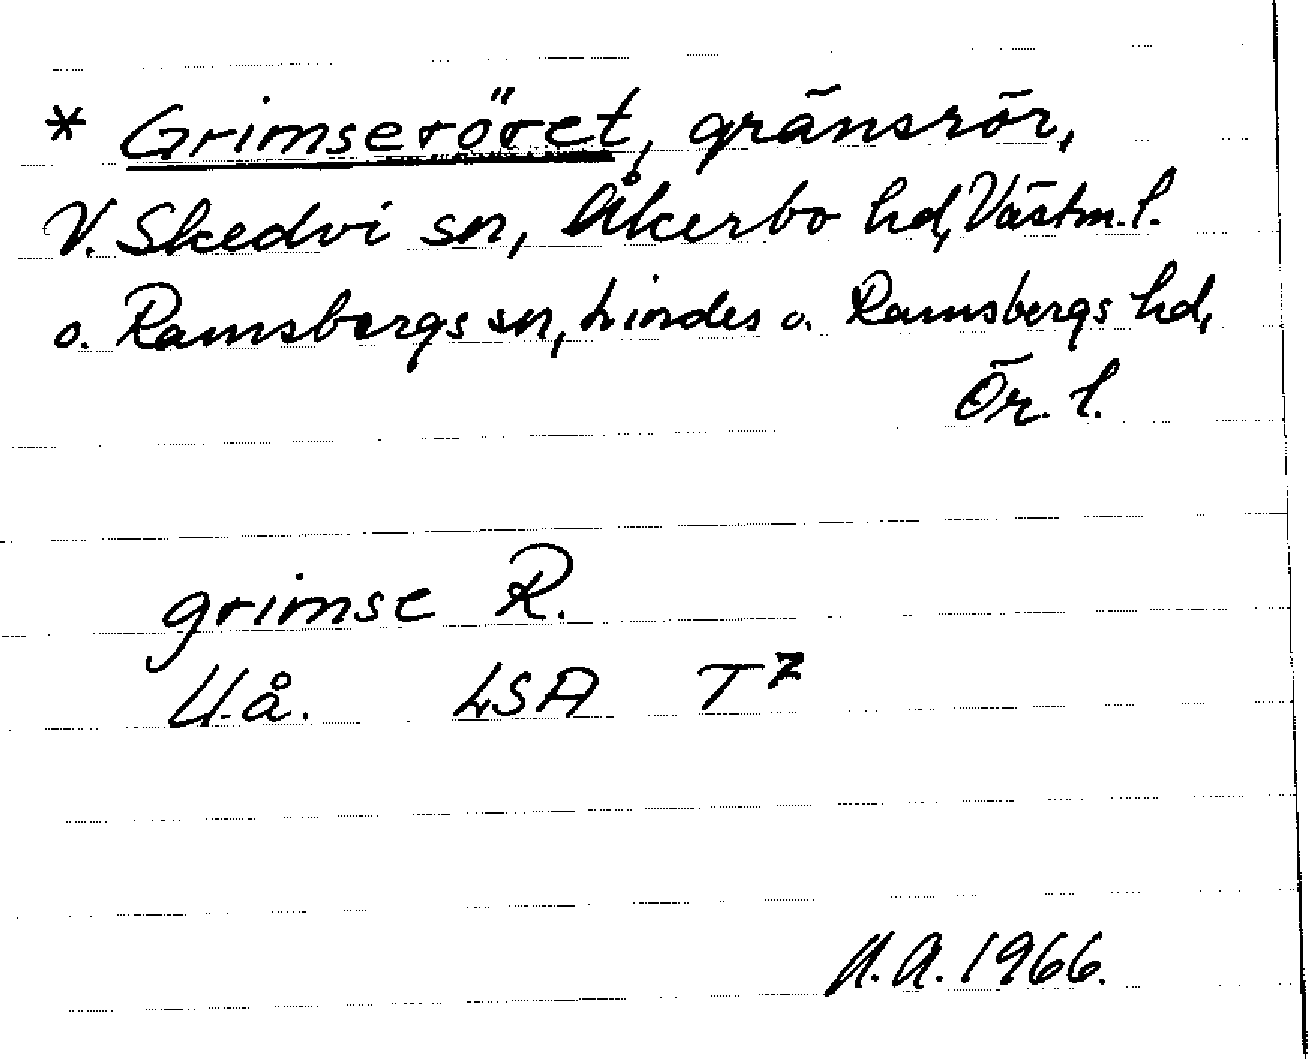 * Grimseröret, gränsrör,
V. Skedvi sn, Åkerbo hd, Västm. l.
o. Ramsbergs sn, Lindes o. Ramsbergs hd,
Ör. l.
grimse R.
U.å. LSA T7
A.A. 1966.